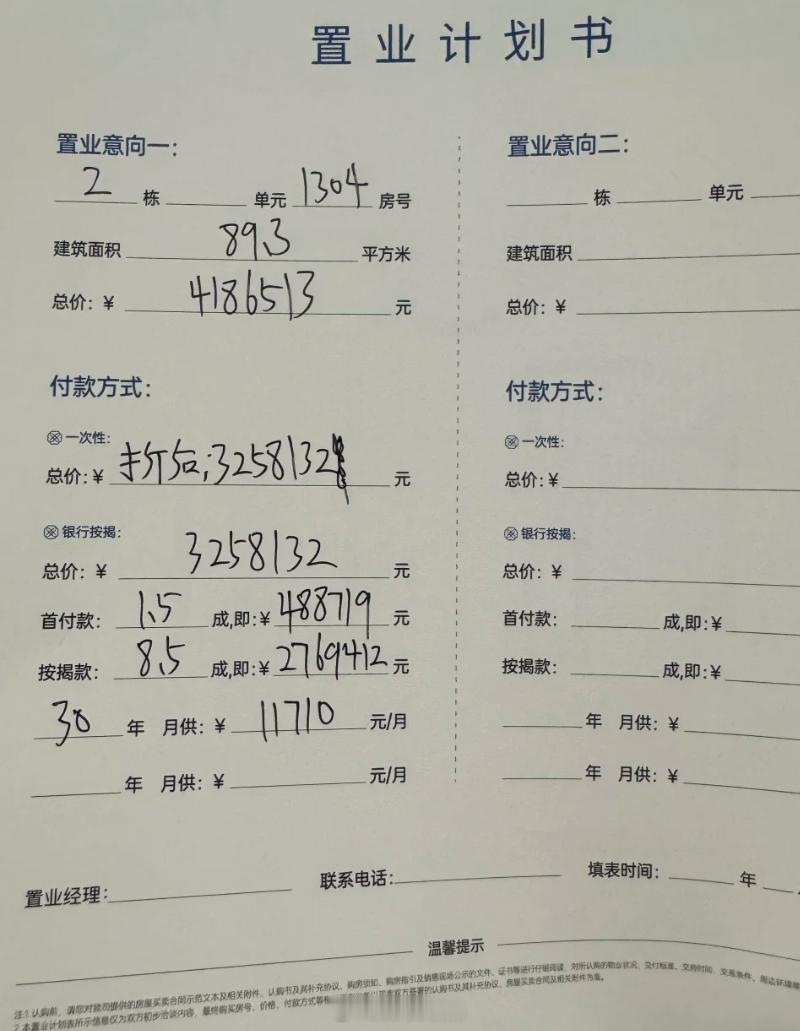 置业计划书
置业意向一：
2 栋 单元 1304 房号
建筑面积 89.3 平方米
总价：¥ 4186513 元
付款方式：
一次性：
总价：¥ 折后：3258132 元
银行按揭：
总价：¥ 3258132 元
首付款： 1.5 成,即:¥ 488719 元
按揭款： 8.5 成,即:¥ 2769412 元
30 年 月供：¥ 11710 元/月
年 月供：¥ 元/月
置业意向二：
栋 单元
建筑面积
总价：¥
付款方式：
一次性：
总价：¥
银行按揭：
总价：¥
首付款： 成,即:¥
按揭款： 成,即:¥
年 月供：¥
年 月供：¥
置业经理： 联系电话： 填表时间： 年
温馨提示
注:1.认购前，请您对我司提供的房屋买卖合同示范文本及相关附件、认购书及其补充协议、购房须知、购房指引及销售现场公示的文件、证书等进行仔细阅读，对所认购的物业状况、交付标准、交房时间、交易条件、周边环境
2.本置业计划表所示信息仅为双方初步洽谈内容，最终购买房号、价格、付款方式等 双方签署的认购书及其补充协议、房屋买卖合同及相关附件为准。